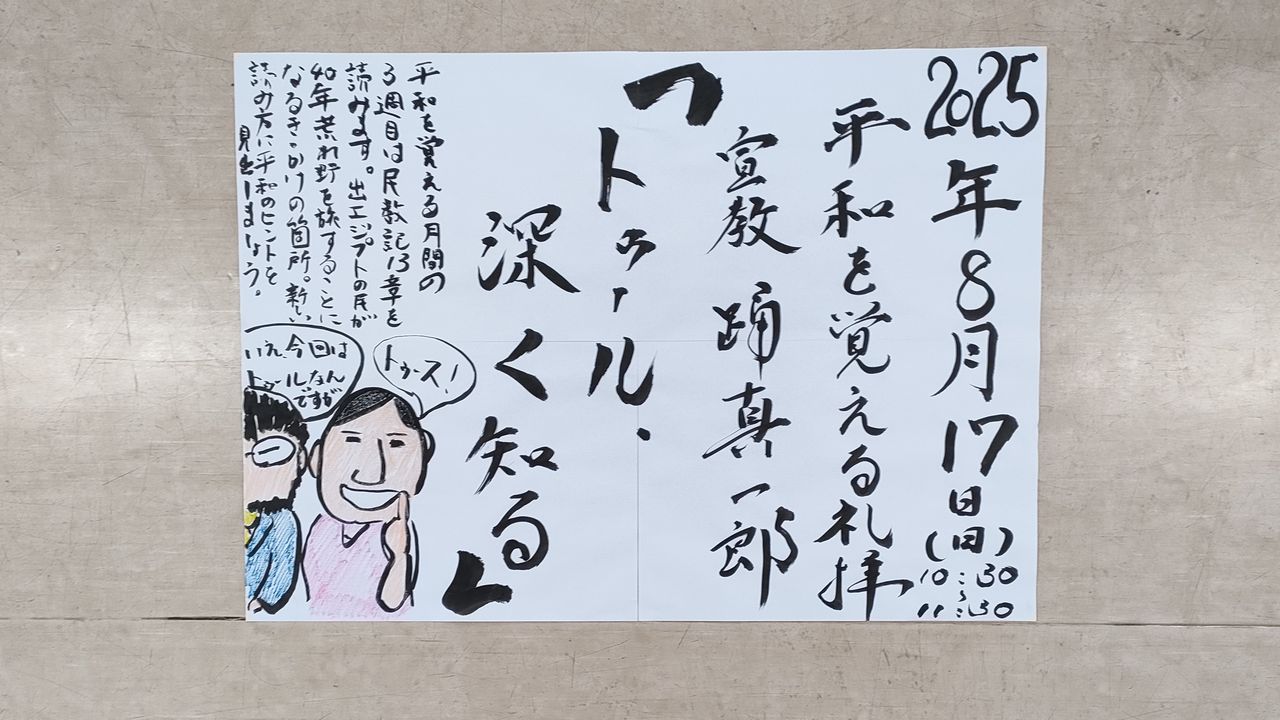 2025年8月17日(日)
10:30
〜
11:30
平和を覚える礼拝
宣教 踊真一郎
「トゥール・
深く知る」
平和を覚える月間の
3週目は民数記13章を
読みます。出エジプトの民が
40年荒れ野を旅することに
なるきっかけの箇所。新しい
読み方に平和のヒントを
見出しましょう。
トゥース!
いえ、今回は
トゥールなん
ですが